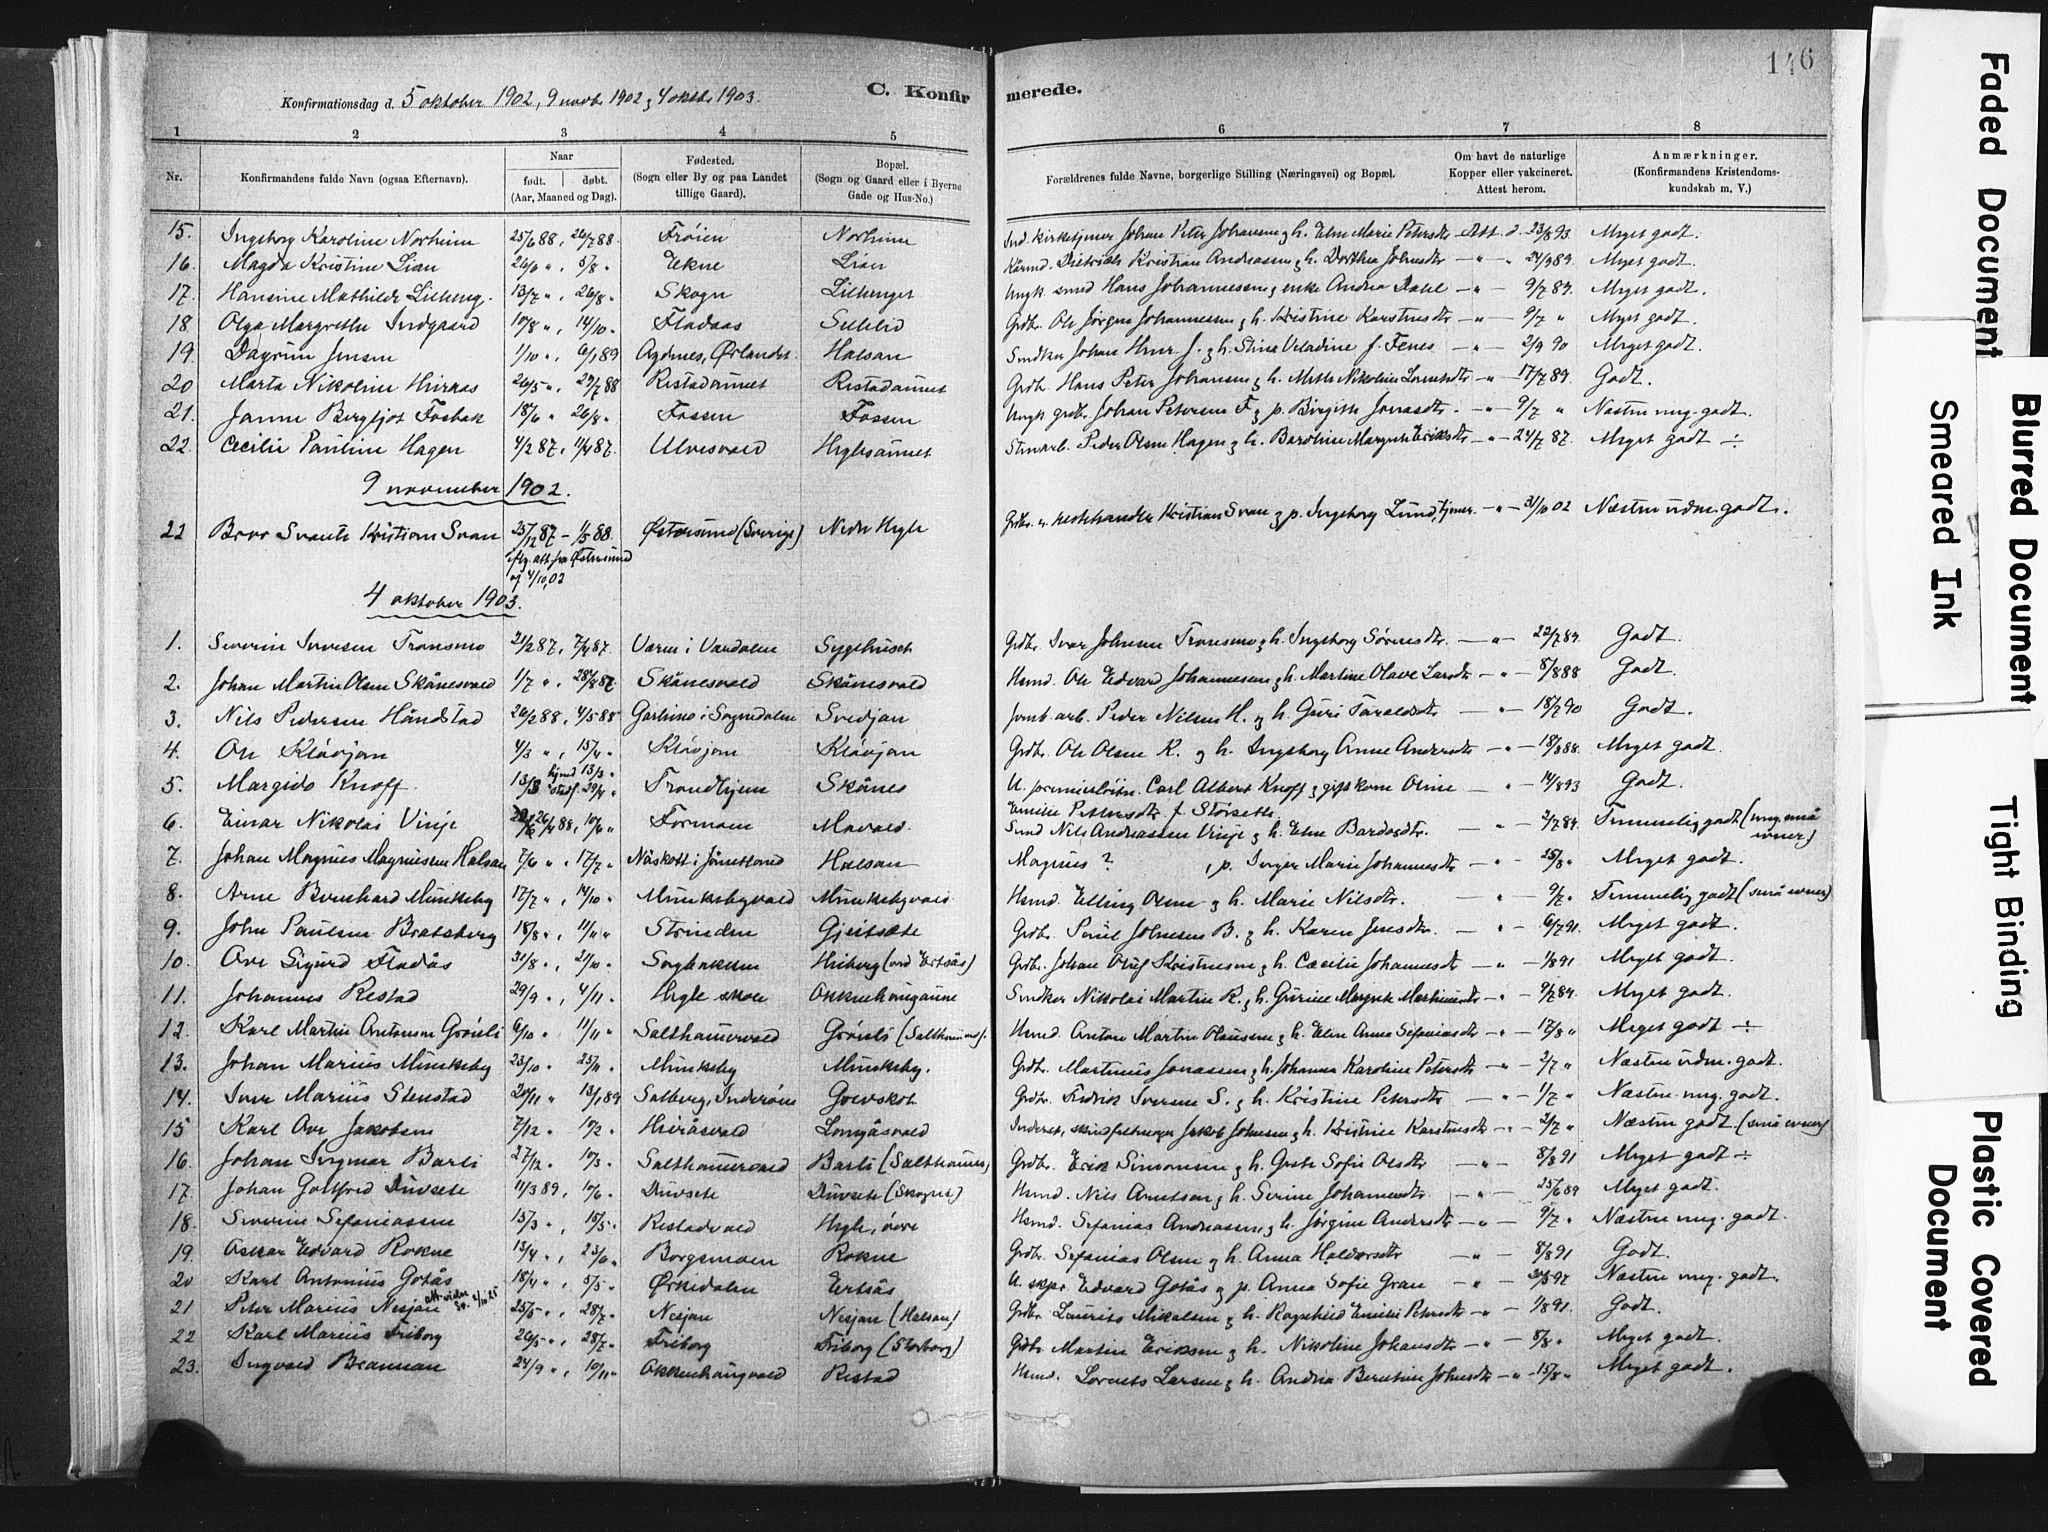 146
Konfirmationsdag d. 5 oktober 1902, 9 novbr 1902 & 4 oktbr 1903.
C. Konfirmerede.
1 2 3 4 5 6 7 8
Nr.
Konfirmandens fulde Navn (ogsaa Efternavn).
Naar
født. døbt.
(Aar, Maaned og Dag).
Fødested.
(Sogn eller By og paa Landet
tillige Gaard).
Bopæl.
(Sogn og Gaard eller i Byerne
Gade og Hus-No.)
Forældrenes fulde Navne, borgerlige Stilling (Næringsvei) og Bopæl.
Om havt de naturlige
Kopper eller vakcineret.
Attest herom.
Anmærkninger.
(Konfirmandens Kristendoms-
kundskab m. V.)
15. Ingeborg Karoline Norheim 25/6 88, 26/7 88. Frøien Norheim Johan Peter Johansen & h. Elen Marie Petersdtr Att. d. 23/8 93 Meget godt.
16. Magda Kristine Lian 26/6 ", 5/8 " Ekne Lian Kristian Andreassen & h. Dorthea Johnsdtr - " - 24/9 89. Meget godt.
17. Hansine Mathilde Lilleeng. 13/7 ", 26/8 " Skogn Lilleenget Ungk. smed Hans Johannessen & enke Andrea Dahl - " - 9/7 89. Meget godt.
18. Olga Margrethe Indgaard 10/8 ", 14/10 " Fladaas Grdbr. Ole Jørgen Johannessen & h. Kristine Karstensdtr - " - 9/7 " Meget godt.
19. Dagrun Jensen 1/10 ", 6/1 89 Agdenes, Ørlandet. Halsan Snedker Johan Henr. J. & h. Stina Veladine f. Fenes - " - 2/9 90 Meget godt.
20 Marta Nikoline Hiraas 26/5 ", 29/7 88 Restadaunet Restadaunet Grdbr. Hans Peter Johansen & h. Mette Nikoline Lorntsdtr - " - 17/7 89. Godt.
21. Janna Bergljot Fosbak 18/6 " 26/8 " Fossen Fossen Ungk. grdbr. Johan Petersen F. & p. Birgitte Jonasdtr. - " - 9/7 " Næsten meg. godt.
22. Cecilie Pauline Hagen 4/2 87, 11/4 87. Ulvesvald Heglesaunet Stenarb. Peder Olsen Hagen & h. Baroline Margrete Eriksdtr - " - 24/7 87. Meget godt ÷
9 november 1902.
22 Bror Svante Kristian Svan 25/12 87 - 1/5 88. Østersund (Sverige) Nedre Hegle Kristian Svan & p. Ingeborg Lund, tjener - " - 31/10 02 Næsten udm. godt.
iflg. att. fra Østersund
af 4/10, 02
4 oktober 1903.
1. Severin Iversen Tronsmo 21/2 87, 7/4 87. Værn i Værdalen Sygehuset Grdbr. Ivar Johnsen Tronsmo & h. Ingeborg Sørensdtr. - " - 22/7 89. Godt.
2. Johan Martin Olsen Skånesvald 1/7 ", 28/8 87. Skånesvald Skånesvald Hsmd. Ole Edvard Johannessen & h. Martine Olave Larsdtr - " - 8/8 88 Godt.
3. Nils Pedersen Håndstad 26/2 88, 4/5 88 Garlimo i Sognedalen Svedjan Jernb.arb. Peder Nilsen H. & h. Guri Taraldsdtr - " - 18/7 90 Godt.
4. Ole Kløvjan 4/3 ", 15/4 " Kløvjan Kløvjan Grdbr. Ole Olsen K. & h. Ingeborg Anna Andersdtr - " - 18/8 88. Meget godt.
5. Margido Knoff. 13/3 hjemd. 13/3 " stedf. 29/4 " Trondhjem Skånes U. premierløitn. Carl Albert Knoff & gift kone Oline - " - 14/8 93 Godt.
Emilie Pettersdtr f. Størseth
6. Einar Nikolai Vinje 26/4 88, 10/6 " Formoen Movald. Smed Nils Andreassen Vinje & h. Elen Bardosdtr. - " - 2/7 89. Temmelig godt (meg. små
evner)
7. Johan Magnus Magnussen Halsan 7/6 ", 17/7 " Näskott i Jämtland Halsan Magnus ? , p. Inger Marie Johannesdtr " - 25/8 " Meget godt.
8. Arne Bernhard Munkeby 17/7 ", 14/10 " Munkebyvald Munkebyvald Hsmd. Elling Olsen & h. Marie Nilsdtr. " - 9/7 " Temmelig godt (små evner)
9. John Paulsen Bratsberg 18/8 ", 11/11 " Strinden Gjeitsæte Grdbr. Paul Johnsen B. & h. Karen Jensdtr. - " - 6/7 91. Meget godt.
10. Ove Sigurd Fladås 31/8 ", 21/10 " Sognbakken Heiberg (ved Ertsås) Grdbr. Johan Oluf Kristensen & h. Cæcilie Johannesdtr - " - 1/8 91 Meget godt.
11. Johannes Restad 29/9 ", 4/11 " Hegle skole Okkenhaugaune Snedker Nikolai Martin R. & h. Gurine Margrete Martinusdtr - " - 9/7 89. Meget godt.
12. Karl Martin Antonsen Grønli 6/10 " 11/11 " Salthamervald Grønli (Salthamervd). Hsmd. Anton Martin Olaussen & h. Elen Anna Sefaniasdtr - " - 17/8 " Meget godt ÷
13. Johan Marius Munkeby 23/10 " 25/11 " Munkeby Munkeby. Grdbr. Martinus Jonassen & h. Johanna Karoline Petersdtr " - 2/7 " Næsten udm. godt.
14. Iver Marius Stenstad 20/11 " 13/1 89 Salberg, Inderøen Grevskot Grdbr. Fredrik Iversen S. & h. Kristine Petersdtr " - 1/7 " Næsten meg. godt.
15 Karl Ove Jakobsen 7/12 " 10/2 " Heiråsvald Longåsvald Inderst, skindfeldmager Jakob Johnsen & h. Kristine Karstensdtr - 2/7 " Næsten godt (små evner)
16. Johan Ingmar Barli 27/12 " 10/3 " Salthamervald Barli (Salthamer) Grdbr. Erik Simonsen & h. Grete Sofie Olsdtr - " - 8/8 91 Meget godt ÷
17. Johan Gottfred Duvsete 11/3 89, 10/6 " Duvsete Duvsete (Skognet) Hsmd. Nils Arntson & h. Serine Johannesdtr - " - 25/6 89 Meget godt.
18. Severin Sefaniassen 15/3 ", 15/5 " Restadvald Hegle, øvre Hsmd. Sefanias Andreassen & h. Jørgine Andersdtr - " - 9/7 " Næsten meg. godt.
19. Oskar Edvard Rokne 13/4 ", 23/6 " Borgsmoen Rokne Grdbr. Sefanias Olsen & h. Anna Haldorsdtr - " - 8/8 91 Godt.
20 Karl Antonius Gotås 18/4 ", 5/5 " Ørkedalen Ertsås U. skpr. Edvard Gotås & p. Anna Sofie Gran " - 20/5 97 Næsten meg. godt.
21 Peter Marius Nesjan 25/5 ", 28/7 " Nesjan Nesjan (Halsan) Grdbr. Laurits Mikalsen & h. Ragnhild Emilie Petersdtr - " - 1/8 91. Godt.
22 Karl Marius Friborg 26/5 ", 28/7 " Friborg Friborg (Storborg) Grdbr. Martin Eriksen & h. Nikoline Johansdtr " - 8/8 " Meget godt.
23. Ingvald Brannan 24/9 ", 10/11 " Okkenhaugvald Restad Hsmd. Lornts Larsen & h. Andrea Berntine Johnsdtr - " - 15/8 " Meget godt.
Faded Document
Blurred Document
Smeared Ink
Tight Binding
Plastic Covered
Document